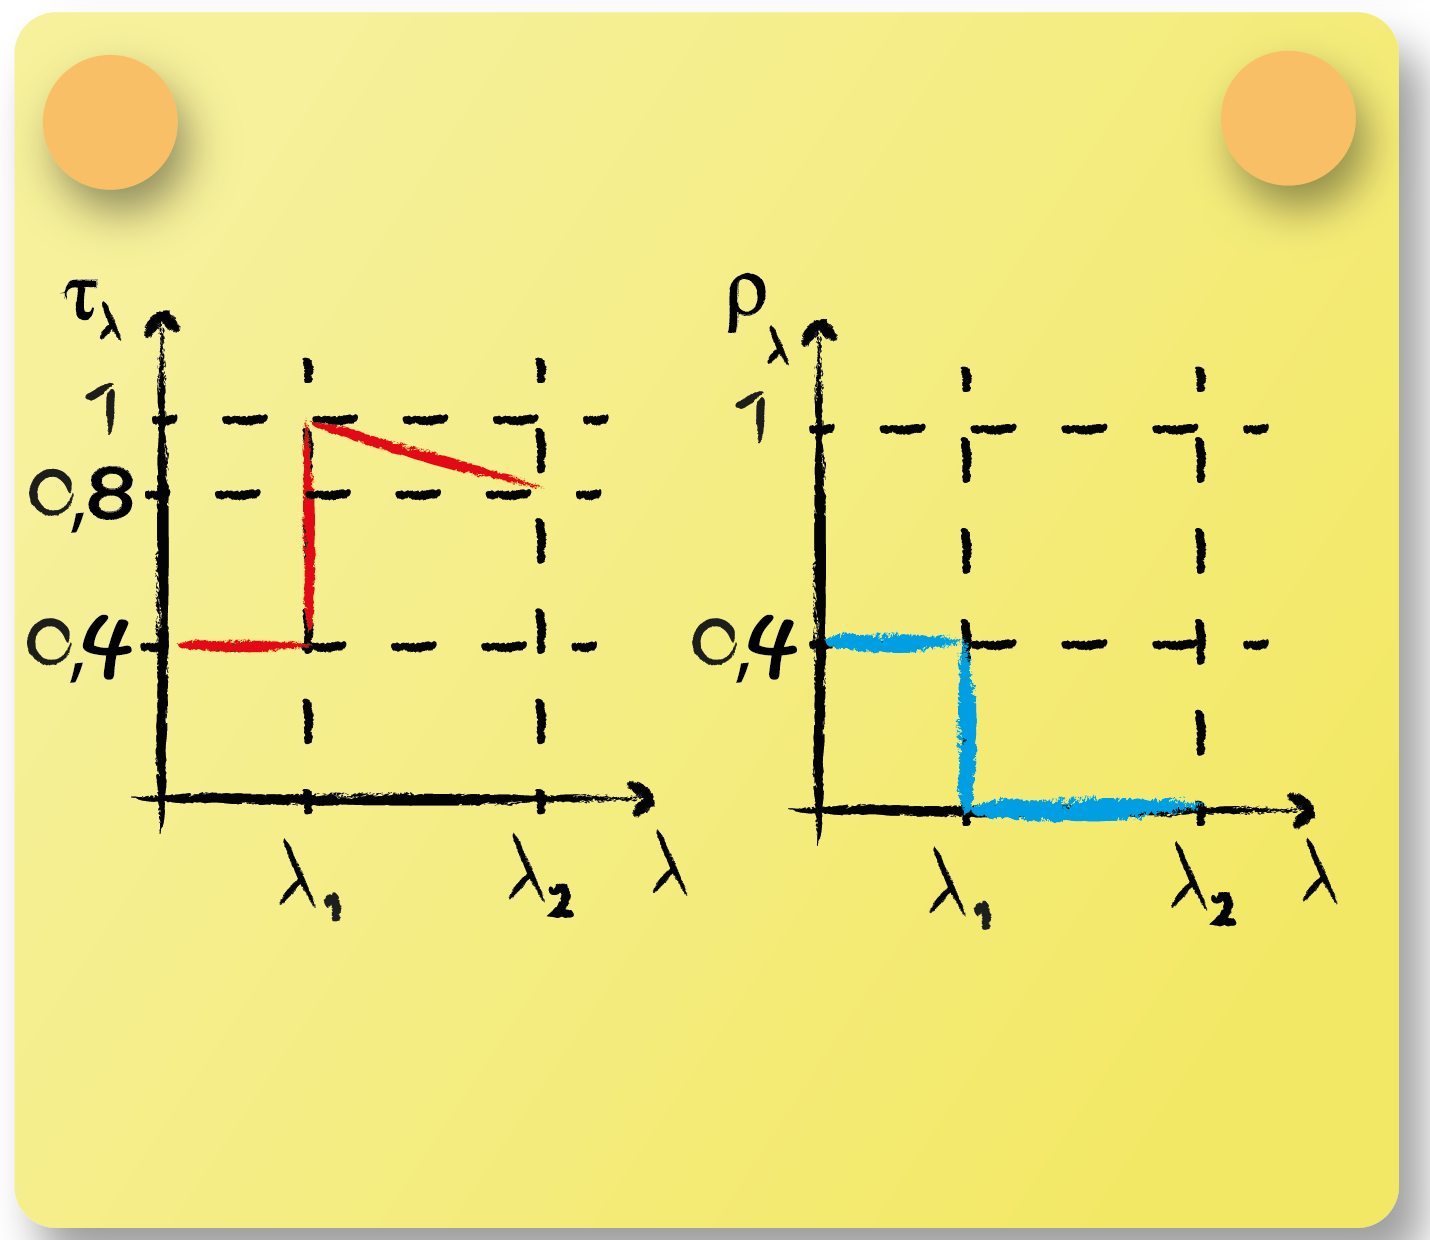 τλ
1
0,8
0,4
λ1 λ2 λ
ρλ
1
0,4
λ1 λ2 λ